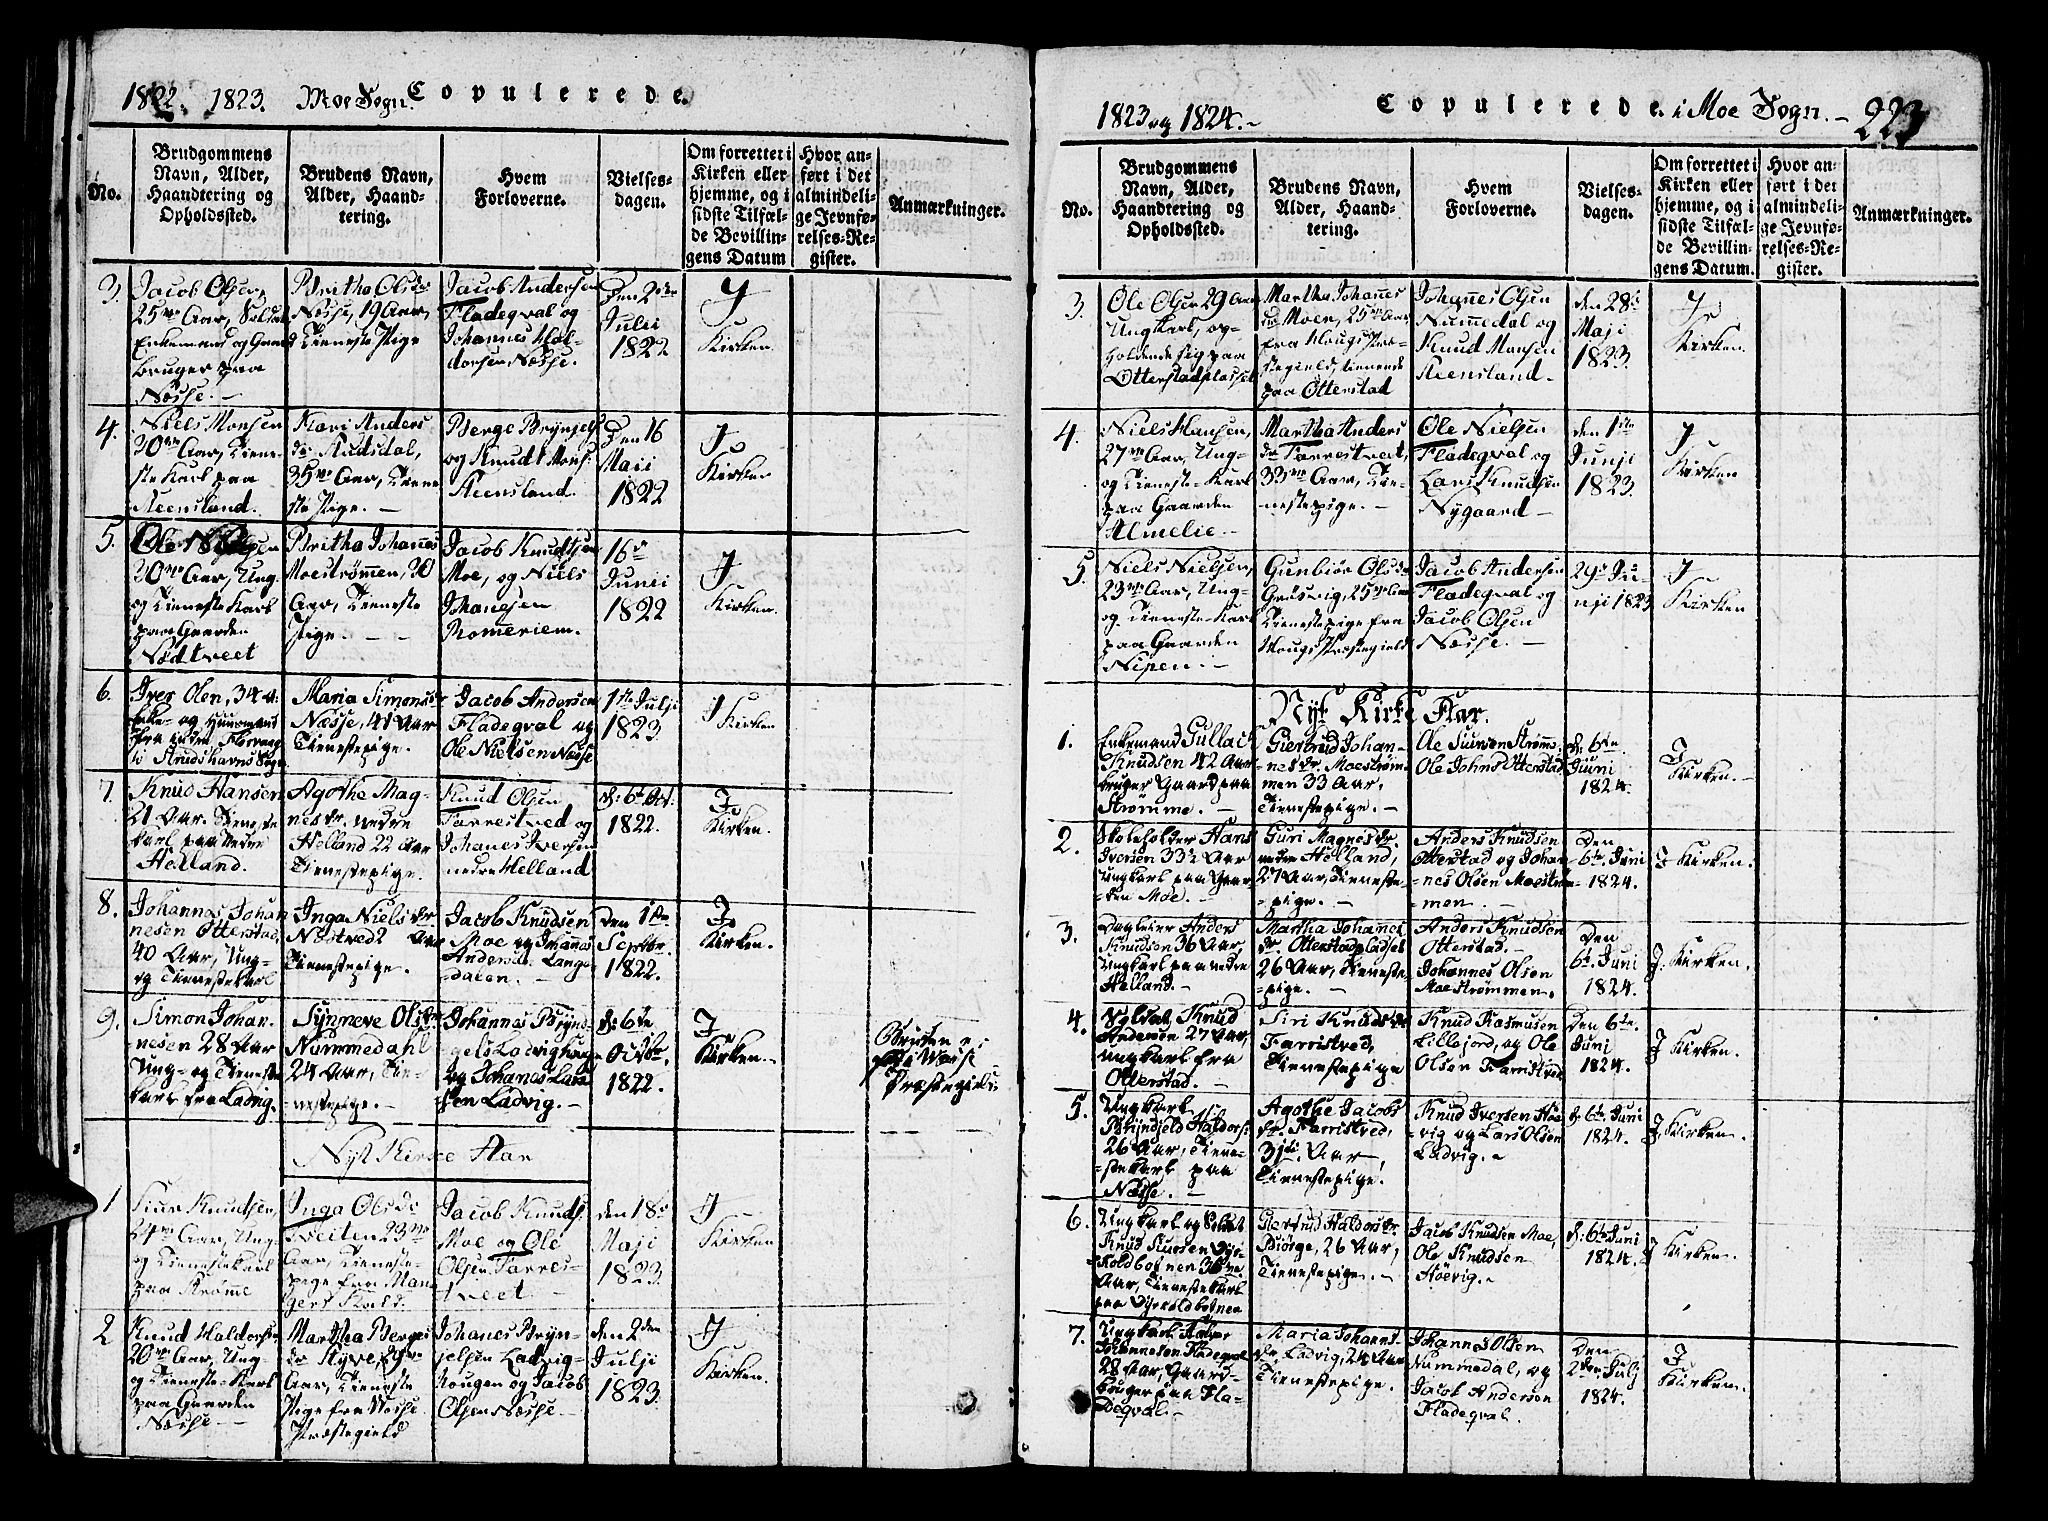 1822. 1823. Moe Sogn. Copulerede.
No.
Brudgommens Navn, Alder, Haandtering og Opholdssted.
Brudens Navn, Alder, Haandtering.
Hvem Forloverne.
Vielsesdagen.
Om forrettet i Kirken eller hjemme, og i sidste Tilfælde Bevillingens Datum
Hvor anført i det almindelige Jevnførelses-Register.
Anmærkninger.
3. Jacob Olsen, 25 Aar, Soldat Enkemand og Gaard bruger paa Næsse. –
Britha Olsdr Næsse, 19 Aar, Tieneste Pige
Jacob Andersen Fladeqval og Johannes Haldorsen Næsse.
Den 2den Julii 1822
J Kirken.
4. Niels Monsen 30 Aar, Tieneste Karl paa Steensland.
Kari Anders dr 35 Aar, Tieneste Pige. –
Berge Brynjels og Knudt Mons: Steensland.
Den 16 Maji 1822
J Kirken
5. Ole 20 Aar, Ung og Tieneste Karl paa Gaarden Nødtveet
Britha Johannes Moestrømen, 30 Aar, Tieneste Pige. –
Jacob Knudtsen Moe, og Niels Johannsen Romeriem.
16 Junii 1822
J Kirken.
6. Iver Olen, 34 Enke- og Huusmand fra
Maria Simonsdr Næsse, 41 Aar Tienestepige.
Jacob Andersen Fladeqval og Ole Nielsen Næsse
1ste Julji 1823
J Kirken
7. Knud Hansen 21 Aar. Tieneste karl paa Nedre Helland.
Agothe Magnesdr. nedre Helland 22 Aar Tienestepige.
Knud Olsen Farrestved og Johanes Iversen nedre Helland
d: 6te Oct: 1822.
J Kirken.
8. Johannes Johannesen Otterstad, 40 Aar, Ung- og Tienestekarl
Inga Niels dr Nøstved Aar Tienestepige.
Jacob Knudsen Moe og Johannes Anders: Langedalen. –
Den 1ste Septbr. 1822.
J Kirken.
9. Simon Johannesen 28 Aar Ung- og Tieneste karl fra Ladvig.
Synneve Olsdr Nummedahl 24 Aar, Tienestepige. –
Johannes Bryndgels Ladvighaug og Johanes Larsen Ladvig. –
d: 6te Octbr 1822.
J Kirken. –
Bruden er i Præstegield
Nyt Kirke Aar
1 Siur Knudtsen, 24 Aar, Ung og Tienestekarl paa Strømme
Inga Olsdr Tveiten 23 Aar, Tienestepige fra Mangers
Jacob Knudts. Moe og Ole Olsen Farrestveet –
den 18 Maji 1823.
J Kirken
2 Knud Haldorsen 20 Aar, Ung og Tieneste-Karl paa Gaarden Næsse –
Martha Berges dr Styve, Aar, Tieneste Pige fra Præstegield
Johanes Brynjelsen Ladvighougen og Jacob Olsen Næsse –
den 2den Julji 1823.
J Kirken.
1823 og 1824. – Copulerede i Moe Sogn. – 223
No.
Brudgommens Navn, Alder, Haandtering og Opholdssted.
Brudens Navn, Alder, Haandtering.
Hvem Forloverne.
Vielsesdagen.
Om forrettet i Kirken eller hjemme, og i sidste Tilfælde Bevillingens Datum.
Hvor anført i det almindelige Jevnførelses-Register.
Anmærkninger.
3. Ole Olsen 29 Aar Ungkarl, opholdende sig paa Otterstadplasset
Martha Johannes dr Moen, 25 Aar, fra Hougs Præstegield, tienende paa Otterstad
Johannes Olsen Nummedal og Knud Monsen Steensland –
den 28 Maji 1823.
J Kirken.
4. Niels Hansen, 27 Aar, Ung- og Tieneste-Karl paa Gaarden Almelie –
Martha Anders dr Farrestvet, 33 Aar, Tienestepige. –
Ole Nielsen Fladeqval og Lars Knudsen Nygaard –
den 1ste Junji 1823.
J Kirken
5. Niels Nielsen, 23 Aar, Ung- og Tieneste-Karl paa Gaarden Nipen. –
Gunbiør Olsdr 25 Aar Tienestepige fra Hougs Præstegield
Jacob Andersen Fladeqval og Jacob Olsen Næsse. –
29 Junji 1823
J Kirken
Nyt Kirke Aar.
1. Enkemand Gullach Knudsen 42 Aar bruger Gaard paa Strømme. –
Giertrud Johannesdr. Moestrømmen 33 Aar, Tienestepige. –
Ole Siursen Strømme, Ole Johns Otterstad
d: 6te Juni 1824.
J Kirken. –
2. Skoleholder Hans Iversen 33½ Aar Ungkarl paa Gaarden Moe. –
Guri Magnesdr. nedre Helland, 27 Aar, Tienestepige. –
Anders Knudsen Otterstad og Johannes Olsen Moestrømmen. –
Den 6te Juni 1824.
J Kirken.
3. Dagleier Anders Knudsen 36 Aar, Ungkarl paa nedre Helland. –
Martha Johannes dr. Otterstadpladset 26 Aar, Tienestepige. –
Anders Knudsen Otterstad. – Johannes Olsen Moestrømmen.
Den 6te Juni 1824.
J. Kirken.
4. Soldat Knud Andersen 27 Aar, Ungkarl fra Otterstad. –
Siri Knudsdr Farristved, Tienestepige
Knud Rasmusen Lillejord, og Ole Olsen Farristved
Den 6te Juni 1824.
J Kirken.
5. Ungkarl Brijndjeld Haldors: 26 Aar, Tienestekarl paa Næsse. –
Agothe Jacobs dr. Farristved, Aar, Tienestepige.
Knud Iversen Høevig og Lars Olsen Ladvig. –
d: 6te Juni 1824.
J. Kirken. –
6. Ungkarl og Soldat Knud Siursen Aar, Tienestekarl paa
Giertrud Haldorsdr. Biørge, 26 Aar, Tienestepige. –
Jacob Knudsen Moe, Ole Knudsen Høevig. –
d: 6te Juni 1824.
J Kirken. –
7. Ungkarl Johannesen Fladeqval 28 Aar, Gaardbruger paa Fladeqval. –
Maria Johannsdr. Ladvig, 24 Aar Tienestepige.
Johannes Olsen Nummedal, og Jacob Andersen Fladeqval.
Den 2den Julj 1824.
J Kirken.